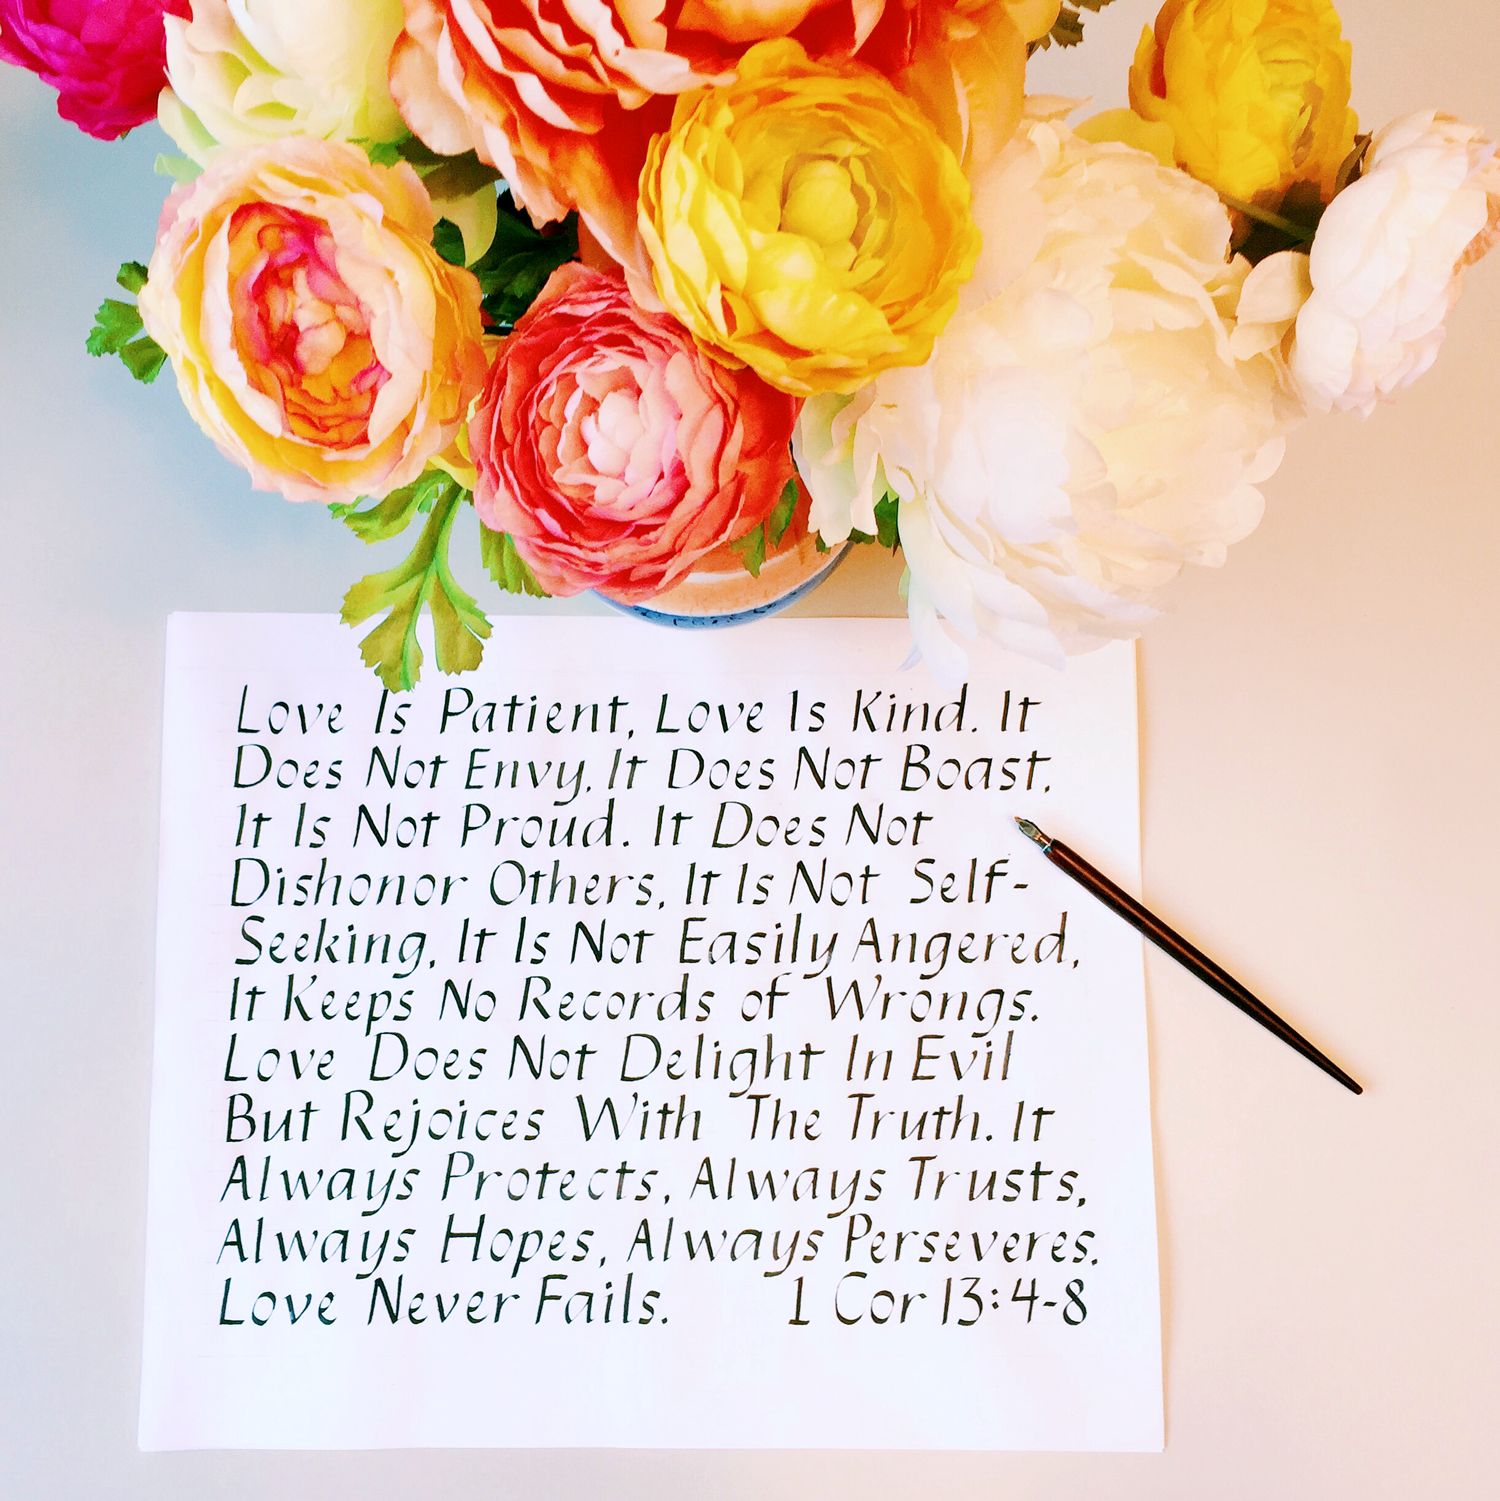 Love Is Patient, Love Is Kind. It
Does Not Envy, It Does Not Boast,
It Is Not Proud. It Does Not
Dishonor Others, It Is Not Self-
Seeking, It Is Not Easily Angered,
It Keeps No Records of Wrongs.
Love Does Not Delight In Evil
But Rejoices With The Truth. It
Always Protects, Always Trusts,
Always Hopes, Always Perseveres.
Love Never Fails. 1 Cor 13:4-8